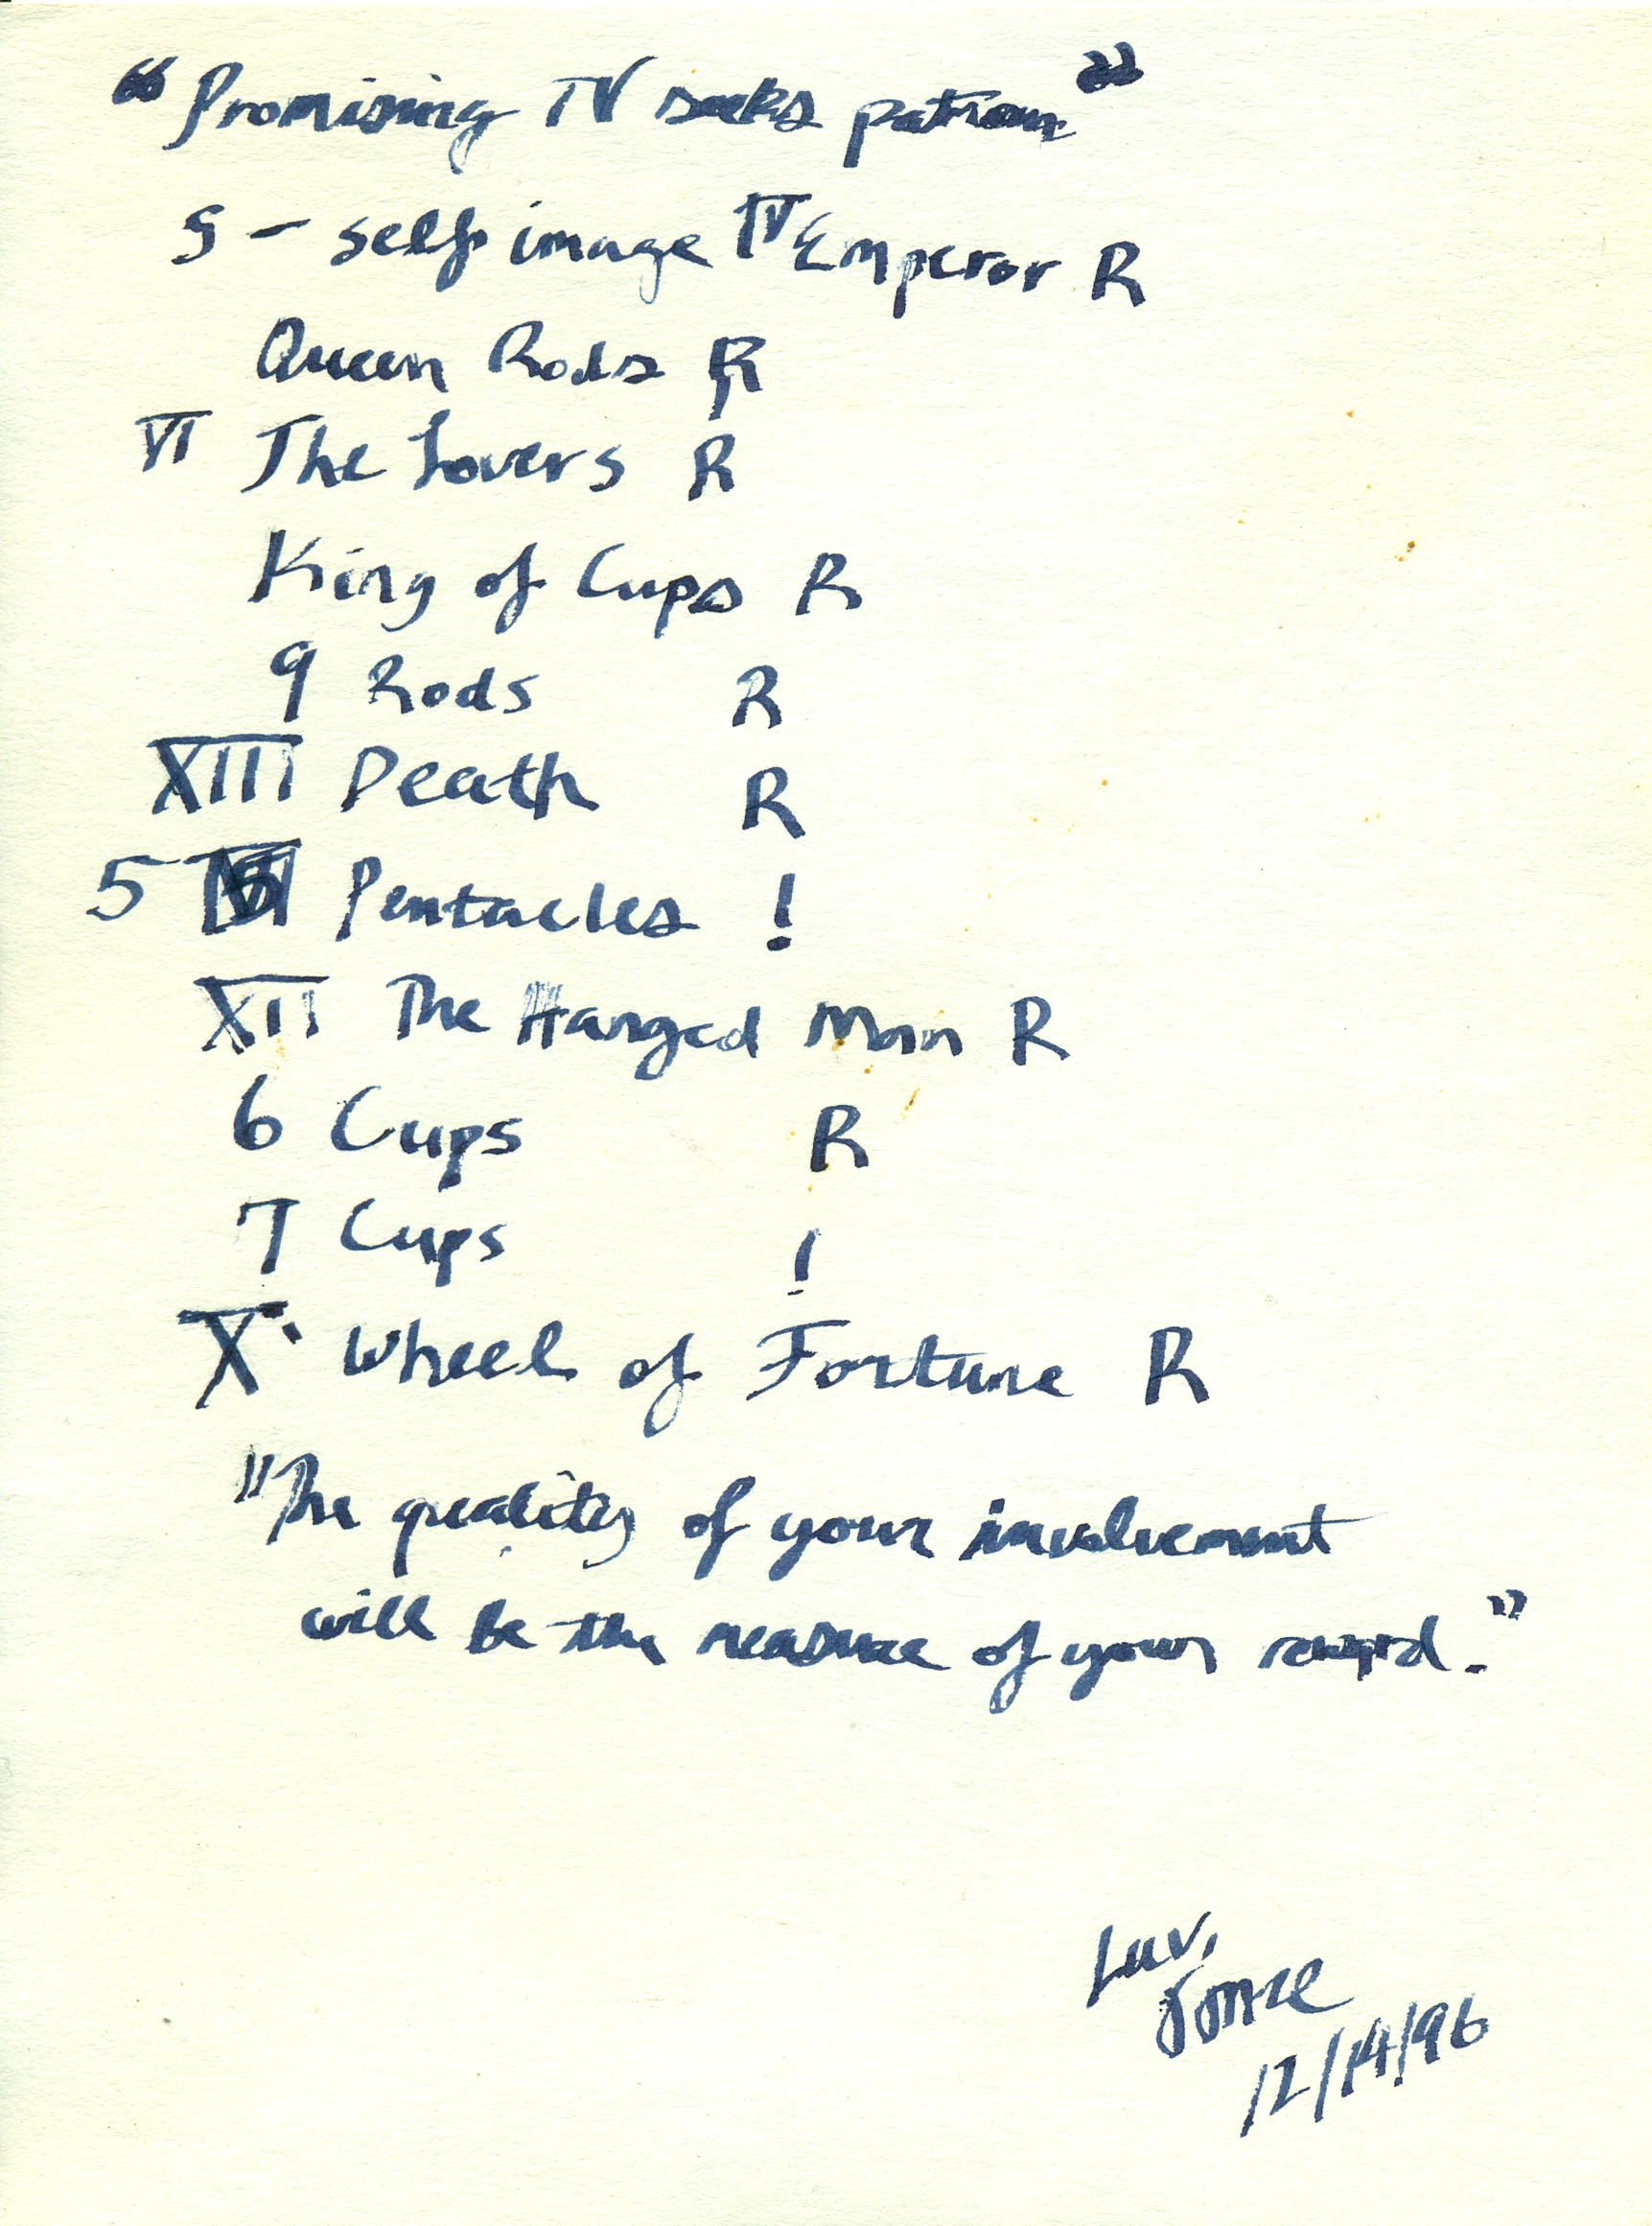 "Promising TV seeks patron"
S – self image IV Emperor R
Queen Rods R
VI The Lovers R
King of Cups R
9 Rods R
XIII Death R
5 Pentacles !
XII The Hanged Man R
6 Cups R
7 Cups !
X Wheel of Fortune R
"The quality of your involvement
will be the measure of your reward."
Luv,
12/14/96